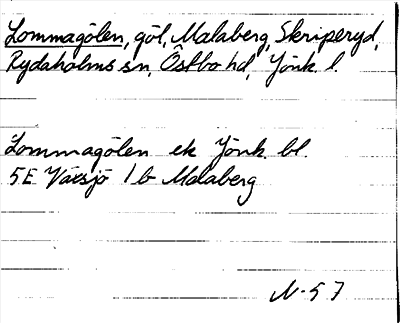 Lommagölen, göl, Malaberg, Skriperyd,
Rydaholms sn, Östbo hd, Jönk. l.
Lommagölen ek Jönk. bl.
5E Växsjö 1b Malaberg
N-57